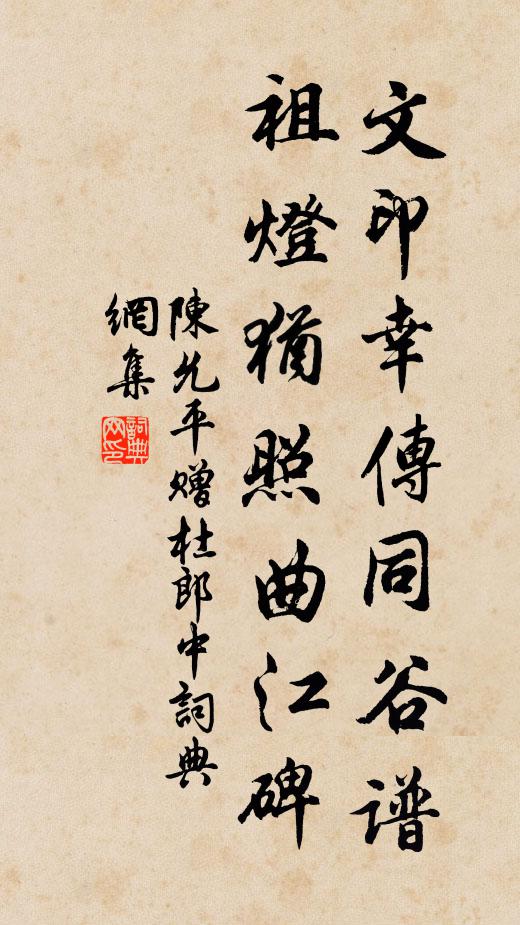 文印幸傳同谷谱
祖燈猶照曲江碑
陳允平赠杜郎中詞典
網集
詞典
网印